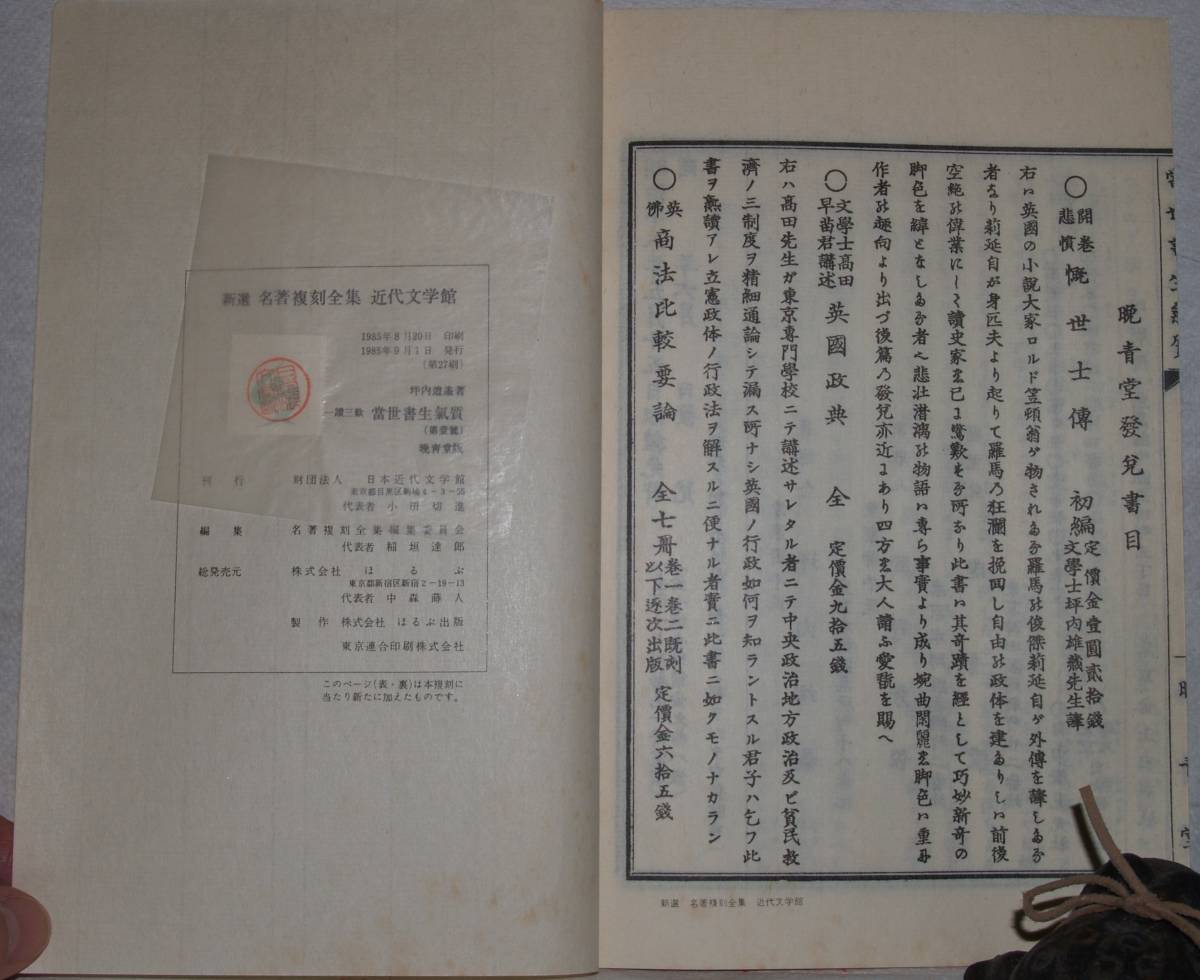 晩青堂發兌書目
○開巻悲憤 慨世士傳 初編 定價金壹圓貳拾錢 文學士坪内雄藏先生譯
右ハ英國の小説大家ロルド笠頓翁が物されたる羅馬の俊傑莉延自が外傳を譯したる
者なり莉延自が身匹夫より起りて羅馬乃狂瀾を挽回し自由の政体を建たりしハ前後
空絶の偉業にして讀史家も已に驚歎する所なり此書ハ其奇蹟を經として巧妙新奇の
脚色を緯となしたる者ヘ悲壮潜漓の物語ハ専ら事實より成り婉曲閑麗の脚色ハ重に
作者の趣向より出づ後篇乃發兌亦近にあり四方の大人請ふ愛翫を賜へ
○文學士高田早苗君講述 英國政典 全 定價金九拾五錢
右ハ高田先生ガ東京専門學校ニテ講述サレタル者ニテ中央政治地方政治及ビ貧民救
濟ノ三制度ヲ精細通論シテ漏ス所ナシ英國ノ行政如何ヲ知ラントスル君子ハ乞フ此
書ヲ熟讀アレ立憲政体ノ行政法ヲ解スルニ便ナル者實ニ此書ニ如クモノナカラン
○英佛 商法比較要論 全七冊 巻一巻二既刻 以下逐次出版 定價金六拾五錢
新選 名著複刻全集 近代文学館
新選 名著複刻全集 近代文学館
1985年8月20日 印刷
1985年9月1日 発行
(第27刷)
坪内逍遙著
一讀三歎 當世書生氣質
(第壹號)
晩青堂版
刊行 財団法人 日本近代文学館
東京都目黒区駒場4-3-55
代表者 小田切進
編集 名著複刻全集編集委員会
代表者 稲垣達郎
総発売元 株式会社 ほるぷ
東京都新宿区新宿2-19-13
代表者 中森蒔人
製作 株式会社 ほるぷ出版
東京連合印刷株式会社
このページ(表・裏)は本複刻に
当たり新たに加えたものです。